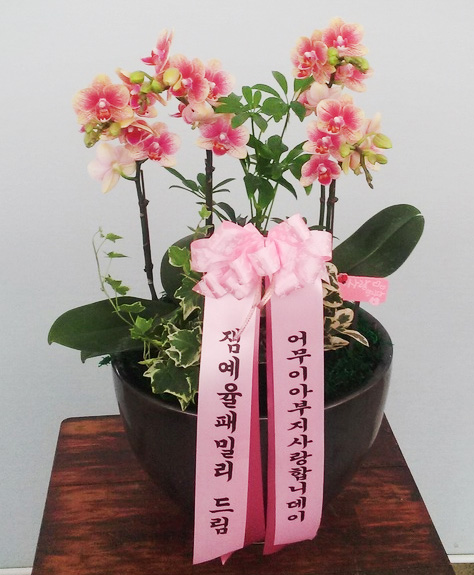 어무이아부지사랑합니데이
잼예율패밀리 드림